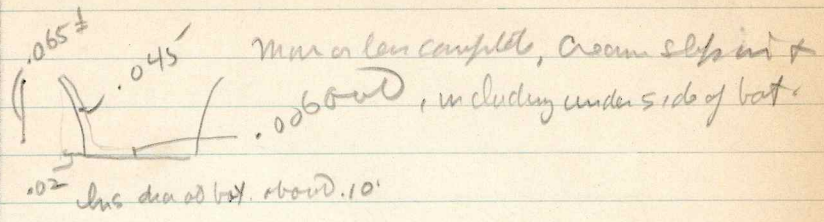 .065±
.045
More or less complete, Cream slip in &
out, including underside of bot.
.006
.02
Ins dia at bot. about .10